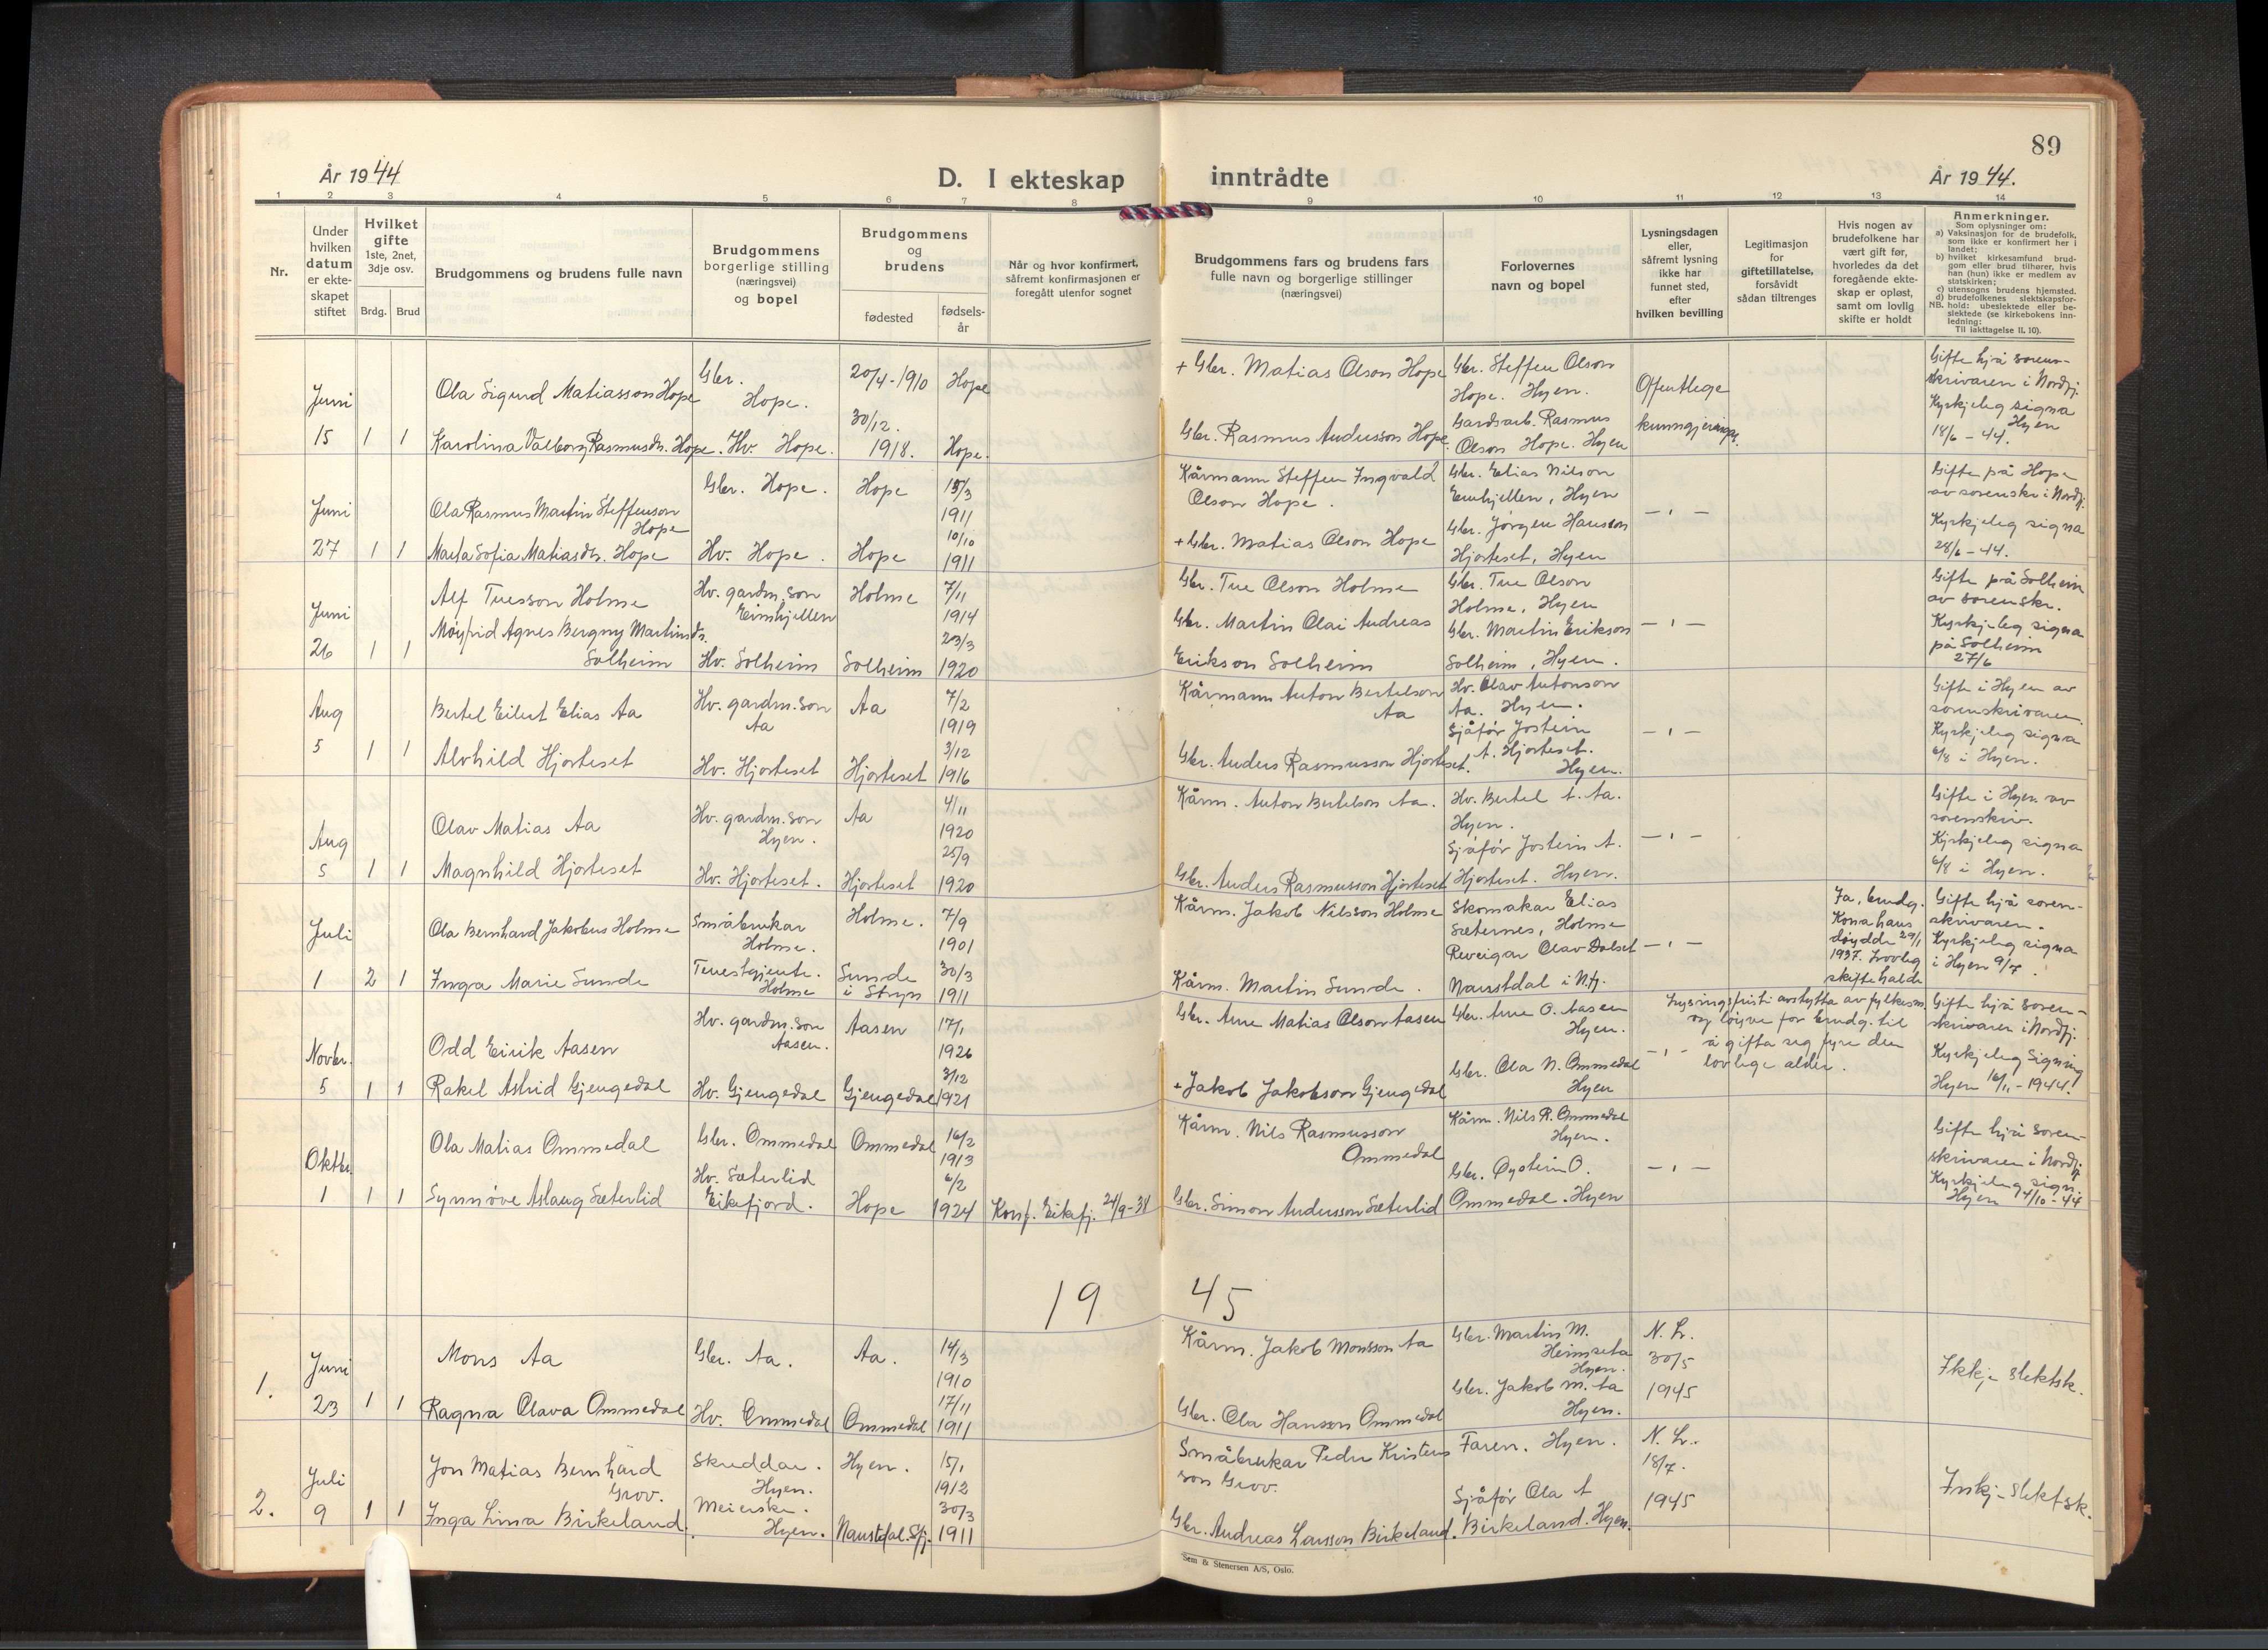 89
År 1944
D. I ekteskap inntrådte
År 1944.
1 2 3 4 5 6 7 8 9 10 11 12 13 14
Nr.
Under hvilken datum er ekteskapet stiftet
Hvilket gifte 1ste, 2net, 3dje osv.
Brdg. Brud
Brudgommens og brudens fulle navn
Brudgommens borgerlige stilling (næringsvei) og bopel
Brudgommens og brudens
fødested
fødselsår
Når og hvor konfirmert, såfremt konfirmasjonen er foregått utenfor sognet
Brudgommens fars og brudens fars fulle navn og borgerlige stillinger (næringsvei)
Forlovernes navn og bopel
Lysningsdagen eller, såfremt lysning ikke har funnet sted, efter hvilken bevilling
Legitimasjon for giftetillatelse, forsåvidt sådan tiltrenges
Hvis nogen av brudefolkene har vært gift før, hvorledes da det foregående ekteskap er opløst, samt om lovlig skifte er holdt
Anmerkninger.
Som oplysninger om:
a) Vaksinasjon for de brudefolk, som ikke er konfirmert her i landet;
b) hvilket kirkesamfund brudgom eller brud tilhører, hvis han (hun) ikke er medlem av statskirken;
c) utensogns brudens hjemsted.
d) brudefolkenes slektskapsforhold: ubeslektede eller beslektede (se kirkebokens innledning:
NB.
Til iakttagelse II, 10).
Juni
15 1 1
Ola Sigurd Matiasson Hope
Karolina Valborg Rasmusdr. Hope.
Gbr. Hope.
Hv. Hope.
20/4-1910 Hope
30/12. 1918. Hope.
+ Gbr. Matias Olson Hope
Gbr. Rasmus Andersson Hope.
Gbr. Steffen Olson
Hope. Hyen.
Gardsarb. Rasmus
Olson Hope. Hyen
Offentlege
kunngjeringar.
Gifte hjå sorens-
skrivaren i Nordfj.
Kyrkjeleg signa
Hyen
18/6 - 44.
Juni
27 1 1
Ola Rasmus Martin Steffenson
Hope
Marta Sofia Matiasdr. Hope
Gbr. Hope.
Hv. Hope.
Hope 15/3 1911
Hope 10/10 1911
Kårmann Steffen Ingvald
Olson Hope.
+ Gbr. Matias Olson Hope
Gbr. Elias Nilson
Eimhjellen, Hyen
Gbr. Jørgen Hansson
Hjorteset, Hyen
— " —
Gifte på Hope
av sorenskr i Nordfj.
Kyrkjeleg signa
28/6 - 44.
Juni
26 1 1
Alf Tuesson Holme
Møyfrid Agnes Bergny Martinsdr.
Solheim
Hv. gardm. son
Eimhjellen
Hv. Solheim
Holme 7/11 1914
Solheim 23/3 1920
Gbr. Tue Olson Holme
Gbr. Martin Olai Andreas
Erikson Solheim
Gbr. Tue Olson
Holme, Hyen
Gbr. Martin Erikson
Solheim, Hyen.
— " —
Gifte på Solheim
av sorenskr.
Kyrkjeleg signa
på Solheim
27/6
Aug
5 1 1
Bertel Eilert Elias Aa
Alvhild Hjorteset
Hv. gardm. son
Aa
Hv. Hjorteset
Aa 7/2 1919
Hjorteset 3/12 1916
Kårmann Anton Bertelson
Aa
Gbr. Anders Rasmusson Hjorteset.
Hv. Olav Antonson
Aa. Hyen.
Sjåfør Jostein
A. Hjorteset.
Hyen.
— " —
Gifte i Hyen av
sorenskrivaren.
Kyrkjeleg signa
6/8 i Hyen.
Aug
5 1 1
Olav Matias Aa
Magnhild Hjorteset
Hv. gardm. son
Hyen.
Hv. Hjorteset.
Aa 4/11 1920
Hjorteset 25/9 1920
Kårm. Anton Bertelson Aa.
Gbr. Anders Rasmusson Hjorteset
Hv. Bertel A. Aa.
Hyen.
Sjåfør Jostein A.
Hjorteset. Hyen.
— " —
Gifte i Hyen av
sorenskriv.
Kyrkjeleg signa
6/8 i Hyen.
Juli
1 2 1
Ola Bernhard Jakobus Holme
Inga Marie Sunde
Småbrukar
Holme.
Tenestgjente.
Holme
Holme. 7/9 1901
Sunde i Stryn 30/3 1911
Kårm. Jakob Nilsson Holme
Kårm. Martin Sunde.
Skomakar Elias
Sæternes, Holme
Reveigar Olav Dalset
Naustdal i N.fj.
— " —
Ja, brudg.
Kona hans
døydde 29/1
1937. Lovleg
skifte halde
Gifte hjå soren-
skrivaren.
Kyrkjeleg signa
i Hyen 9/7.
Novbr.
5 1 1
Odd Eirik Aasen
Rakel Astrid Gjengedal
Hv. gardm. son
Aasen.
Hv. Gjengedal
Aasen 17/1 1926
Gjengedal 3/12 1921
Gbr. Arne Matias Olson Aasen
+ Jakob Jakobson Gjengedal
Gbr. Arne O. Aasen
Hyen.
Gbr. Ola N. Ommedal
Hyen
— " —
Lysingsfristi avstytta av fylkesm.
og løyve for brudg. til
å gifta seg fyre den
lovlege alder.
Gifte hjå soren-
skrivaren i Nordfj.
Kyrkjeleg signing
Hyen 16/11 - 1944.
Oktbr.
1 1 1
Ola Matias Ommedal
Synnöve Aslaug Sæterlid
Gbr. Ommedal
Hv. Sæterlid
Eikefjord.
Ommedal 16/2 1913
Hope 6/2 1924
Konf. Eikefj. 24/9-38
Kårm. Nils Rasmusson
Ommedal
Gbr. Simon Andersson Sæterlid
Kårm. Nils R. Ommedal
Hyen.
Gbr. Øystein O.
Ommedal. Hyen
— " —
Gifte hjå soren-
skrivaren i Nordfj.
Kyrkjeleg sign.
Hyen 4/10 - 44
19 45
1.
Juni
23 1 1
Mons Aa
Ragna Olava Ommedal
Gbr. Aa.
Hv. Ommedal
Aa. 14/3 1910
Ommedal 17/11 1911
Kårm. Jakob Monsson Aa
Gbr. Ola Hansson Ommedal
Gbr. Martin M.
Heimseta
Hyen.
Gbr. Jakob M. Aa
Hyen.
N. L.
30/5
1945
Ikkje slektsk.
2.
Juli
9 1 1
Jon Matias Bernhard
Grov.
Inga Lina Birkeland.
Skreddar.
Hyen.
Meierske.
Hyen.
Hyen. 15/1 1912
Naustdal. Sfj. 30/3 1911
Småbrukar Peder Kristens
son Grov.
Gbr. Andreas Larsson Birkeland.
Faren. Hyen.
Sjåfør Ola A
Birkeland. Hyen.
N. L.
18/7.
1945
Inkj. slektsk.
Sem & Stenersen A/S, Oslo.